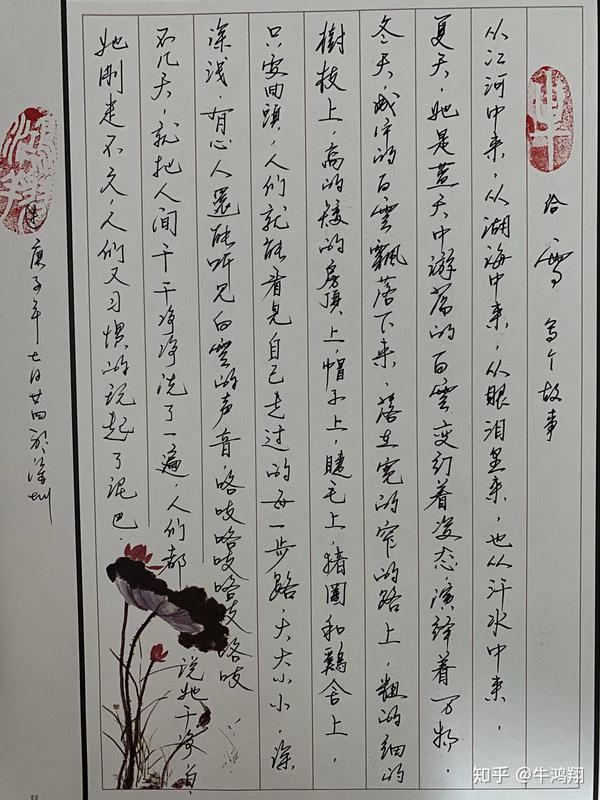 给雪写个故事
从江河中来，从湖海中来，从眼泪里来，也从汗水中来，
夏天，她是蓝天中游荡的白雲变幻着姿态，演绎着万物，
冬天，成片的白雲飄落下来，落在宽的窄的路上，粗的细的
樹枝上，高的矮的房頂上，帽子上，睫毛上，猪圈和鷄舍上，
只要回頭，人们就能看見自己走过的每一步路，大大小小，深
深浅 有心人還能听見白雲的声音，咯吱咯吱咯吱咯吱
不几天，就把人间干干净净洗了一遍，人们都说她干净，
她刚走不久，人们又习惯的玩起了泥巴．
庚子年七月廿四於深圳
牛
鸿翔
知乎 @牛鸿翔